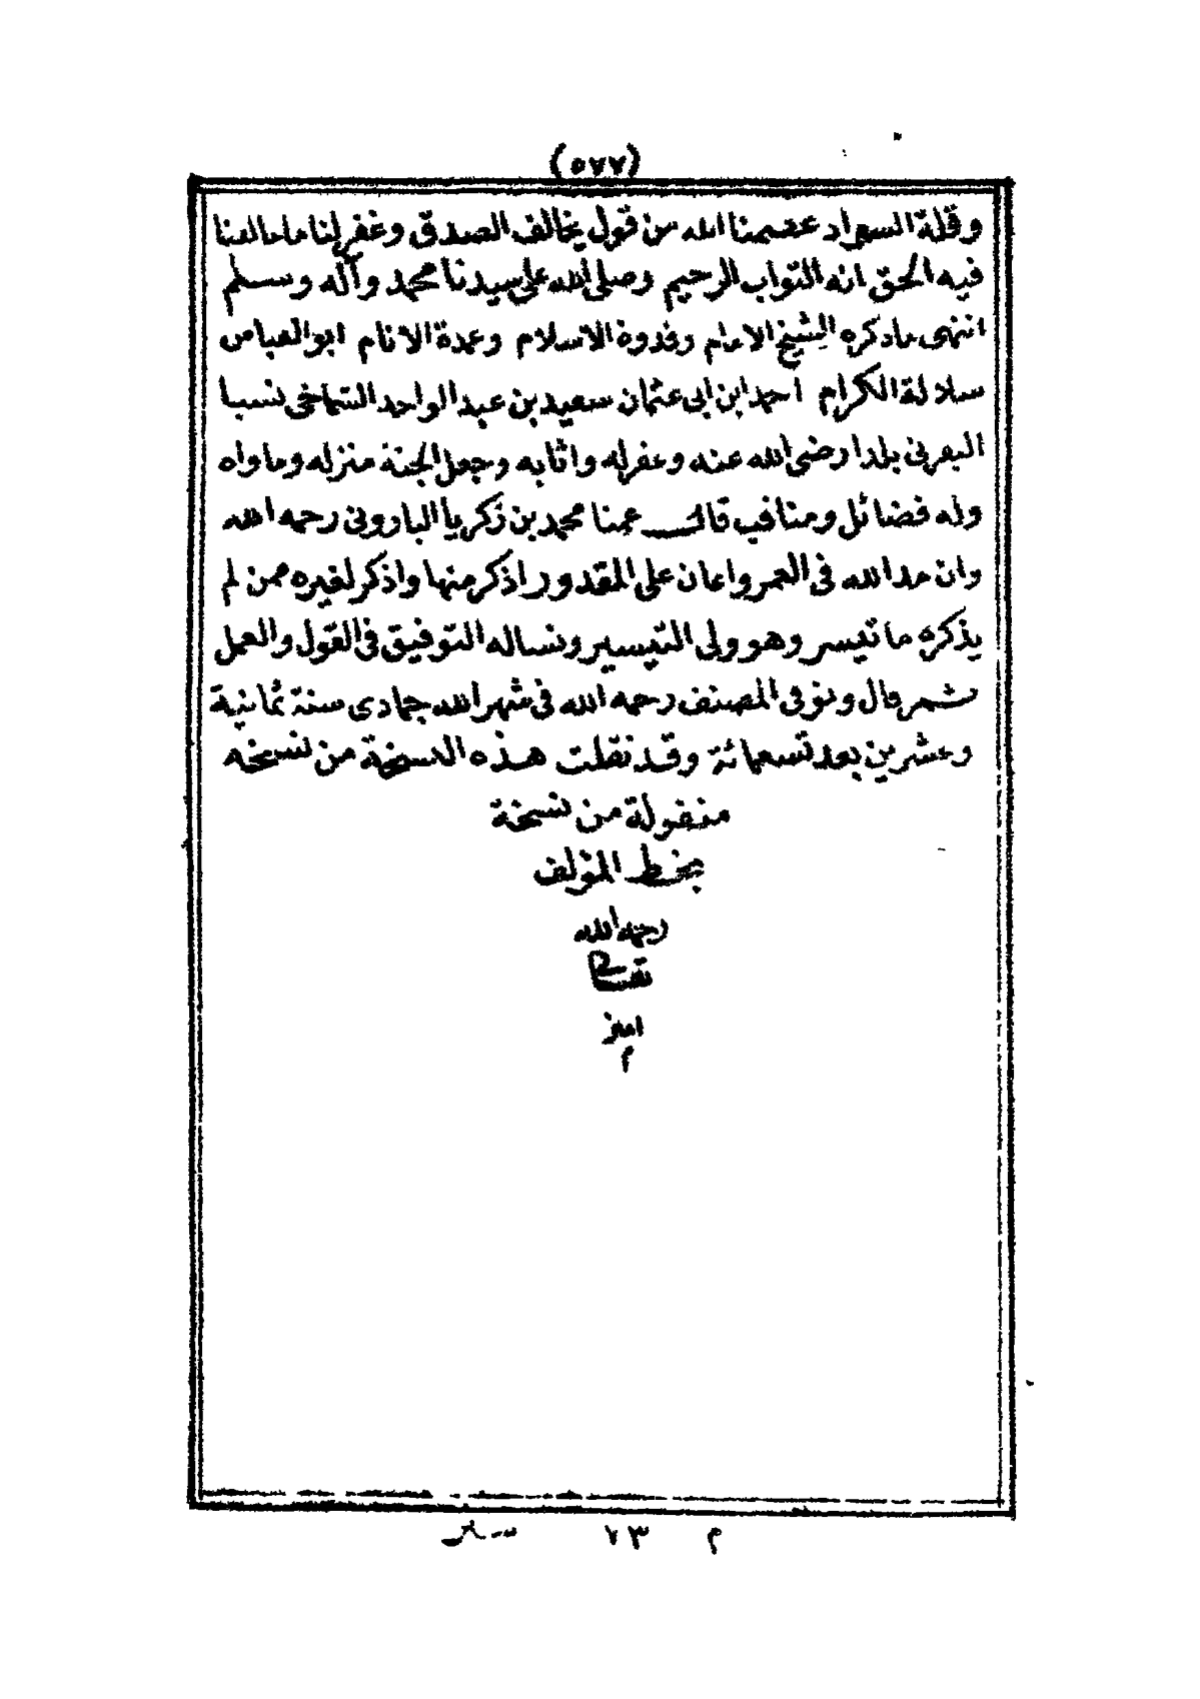 (٥٧٧)
وقلة السعراد عصمنا الله من قول يخالف الصدق وغفر لنا ما خالفنا
فيه الحق انه التواب الرحيم وصلى الله على سيدنا محمد وآله وسلم
انتهى ما ذكره الشيخ الامام وقدوة الاسلام وعمدة الانام ابو العباس
سلالة الكرام احمد ابن ابى عثمان سعيد بن عبد الواحد الشماخى نسبا
اليفرنى بلدا رضى الله عنه وغفر له واثابه وجعل الجنة منزله وماواه
وله فضائل ومناقب قال عمنا محمد بن زكريا البارونى رحمه الله
وان مد الله فى العمر واعان على المقدور اذكر منها واذكر لغيره ممن لم
يذكره ما تيسر وهو ولى التيسير ونساله التوفيق فى القول والعمل
ثم قال وتوفى المصنف رحمه الله فى شهر الله جمادى سنة ثمانية
وعشرين بعد تسعمائة وقد نقلت هذه النسخة من نسخه
منقولة من نسخة
بخط المؤلف
رحمه الله
امين
م
م ٧٣ سير